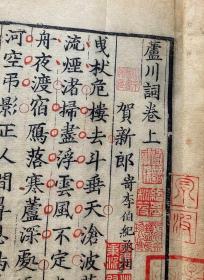 蘆川詞卷上
賀新郎 寄李伯紀丞相
曳杖危樓去斗垂天滄波
流煙渚掃盡浮雲風不定
舟夜渡宿鴈落寒蘆深處
河空弔影正人間鼻息